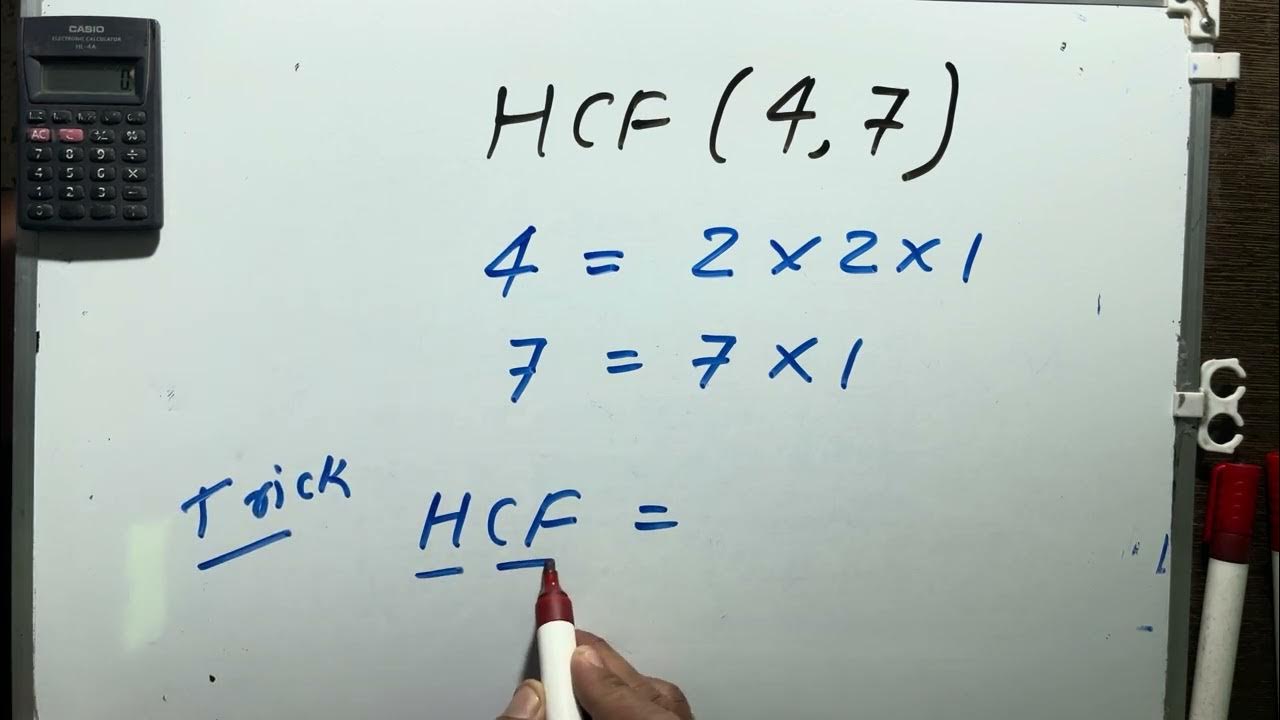 CASIO
ELECTRONIC CALCULATOR
HL-4A
0
AC C
7 8 9 ÷
4 5 6 ×
1 2 3 −
0
HCF (4,7)
4 = 2 × 2 × 1
7 = 7 × 1
Trick HCF =